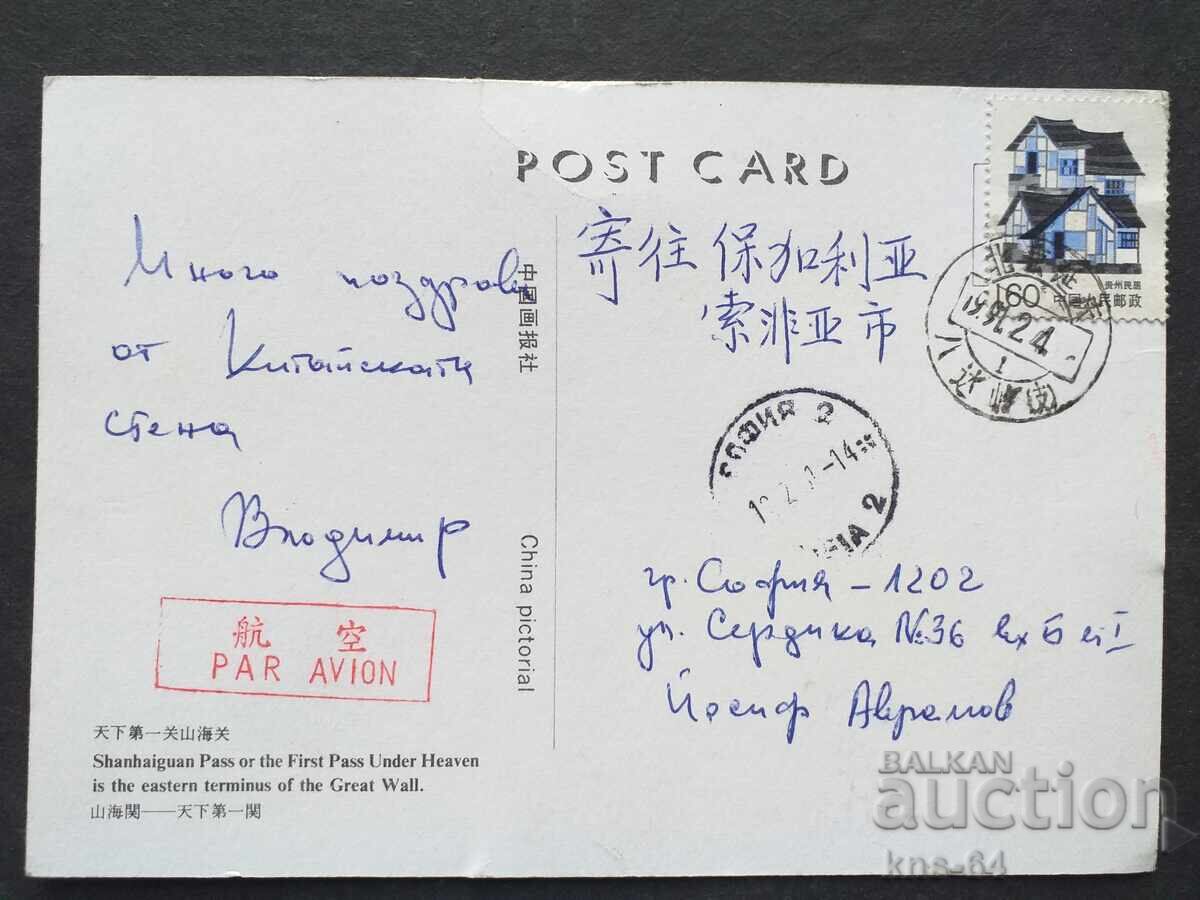 POST CARD
Много поздрави
от Китайската
стена
Владимир
航 空
PAR AVION
天下第一关山海关
Shanhaiguan Pass or the First Pass Under Heaven
is the eastern terminus of the Great Wall.
山海関——天下第一関
中国画报社
China pictorial
160 中国人民邮政
贵州民居
寄往 保加利亚
索非亚市
八达岭
СОФИЯ 2
2
гр. София - 1202
ул. Сердика №36 вх Б ет I
Йосиф Аврамов
BALKAN
auction
kns-64